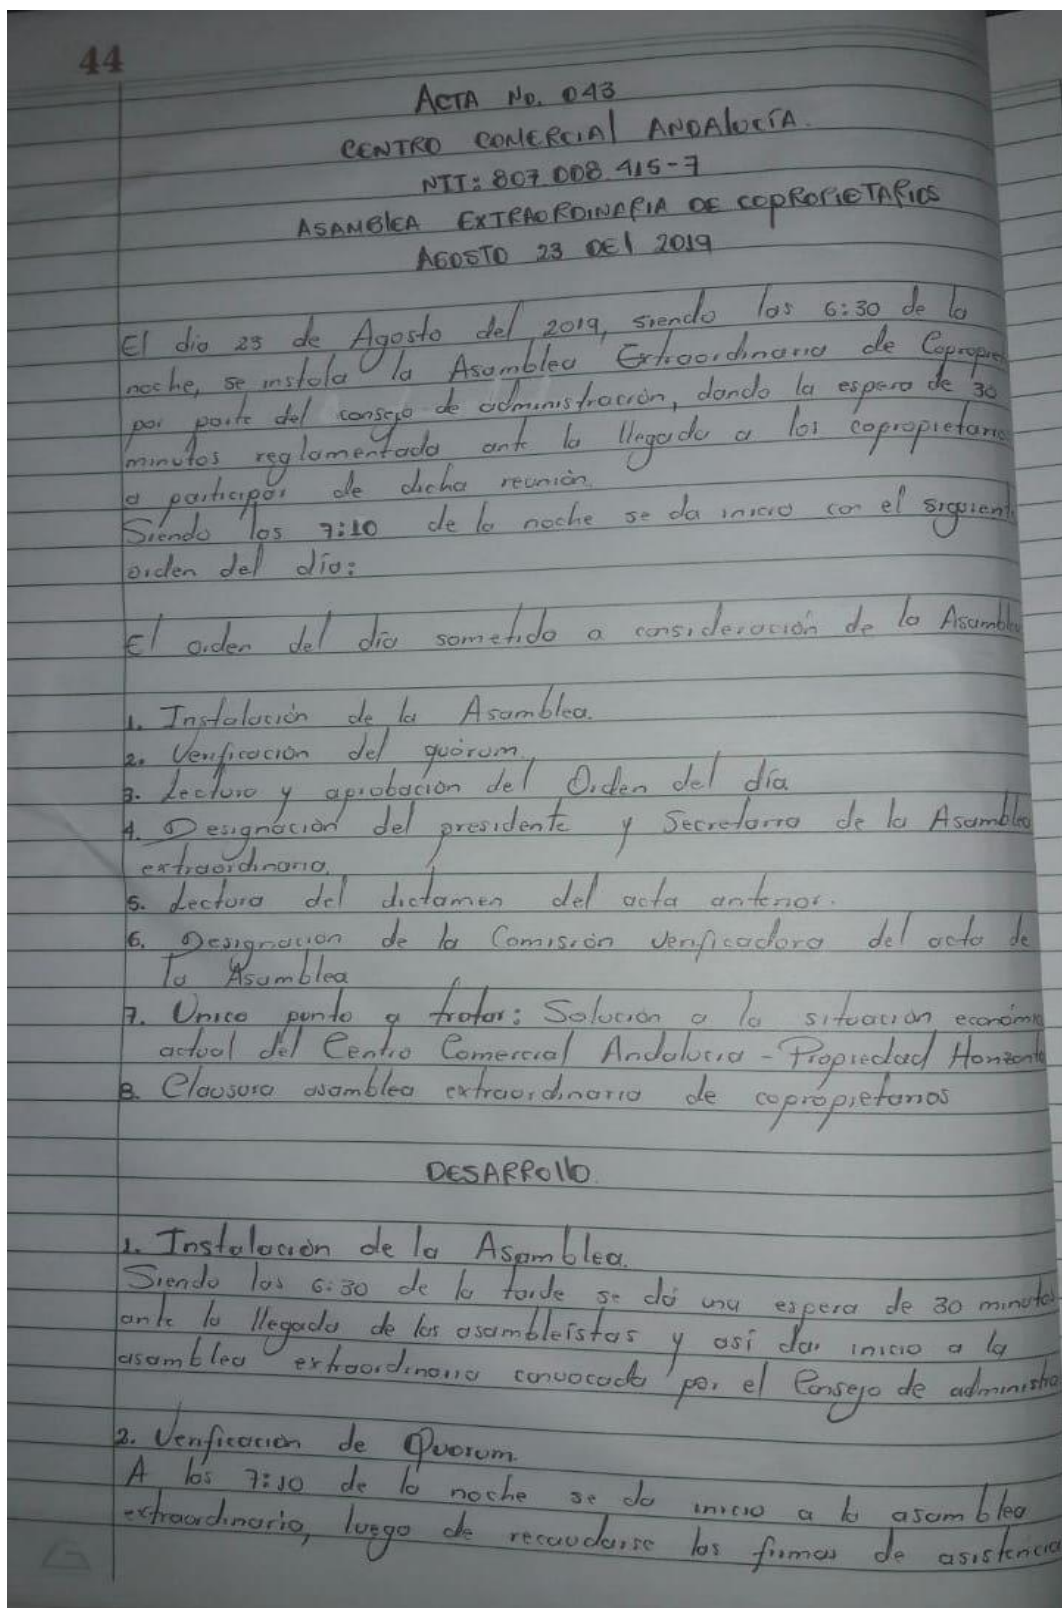 44
ACTA No. 043
CENTRO COMERCIAL ANDALUCÍA.
NIT: 807.008.415-7
ASAMBLEA EXTRAORDINARIA DE COPROPIETARIOS
AGOSTO 23 DEL 2019
El dia 23 de Agosto del 2019, siendo las 6:30 de la
noche, se instala la Asamblea Extraordinaria de Copropie
por parte del consejo de administración, dando la espera de 30
minutos reglamentada ante la llegada a los copropietario
a participar de dicha reunión.
Siendo las 7:10 de la noche se da inicio con el siguient
orden del día:
El orden del día sometido a consideración de la Asamblea
1. Instalación de la Asamblea.
2. Verificación del quórum
3. Lectura y aprobación del Orden del día
4. Designación del presidente y Secretaria de la Asamblea
extraordinaria.
5. Lectura del dictamen del acta anterior.
6. Designación de la Comisión verificadora del acta de
la Asamblea
7. Unico punto a tratar: Solución a la situación económi
actual del Centro Comercial Andalucia - Propiedad Horizont
8. Clausura asamblea extraordinaria de copropietarios
DESARROLLO
1. Instalación de la Asamblea.
Siendo las 6:30 de la tarde se dá una espera de 30 minutos
ante la llegada de los asambleístas y así dar inicio a la
asamblea extraordinaria convocada por el Consejo de administra
2. Verificación de Quorum.
A las 7:10 de la noche se da inicio a la asamblea
extraordinaria, luego de recaudarse las firmas de asistencia